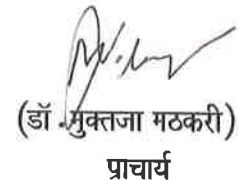 (डॉ .मुक्तजा मठकरी)
प्राचार्य